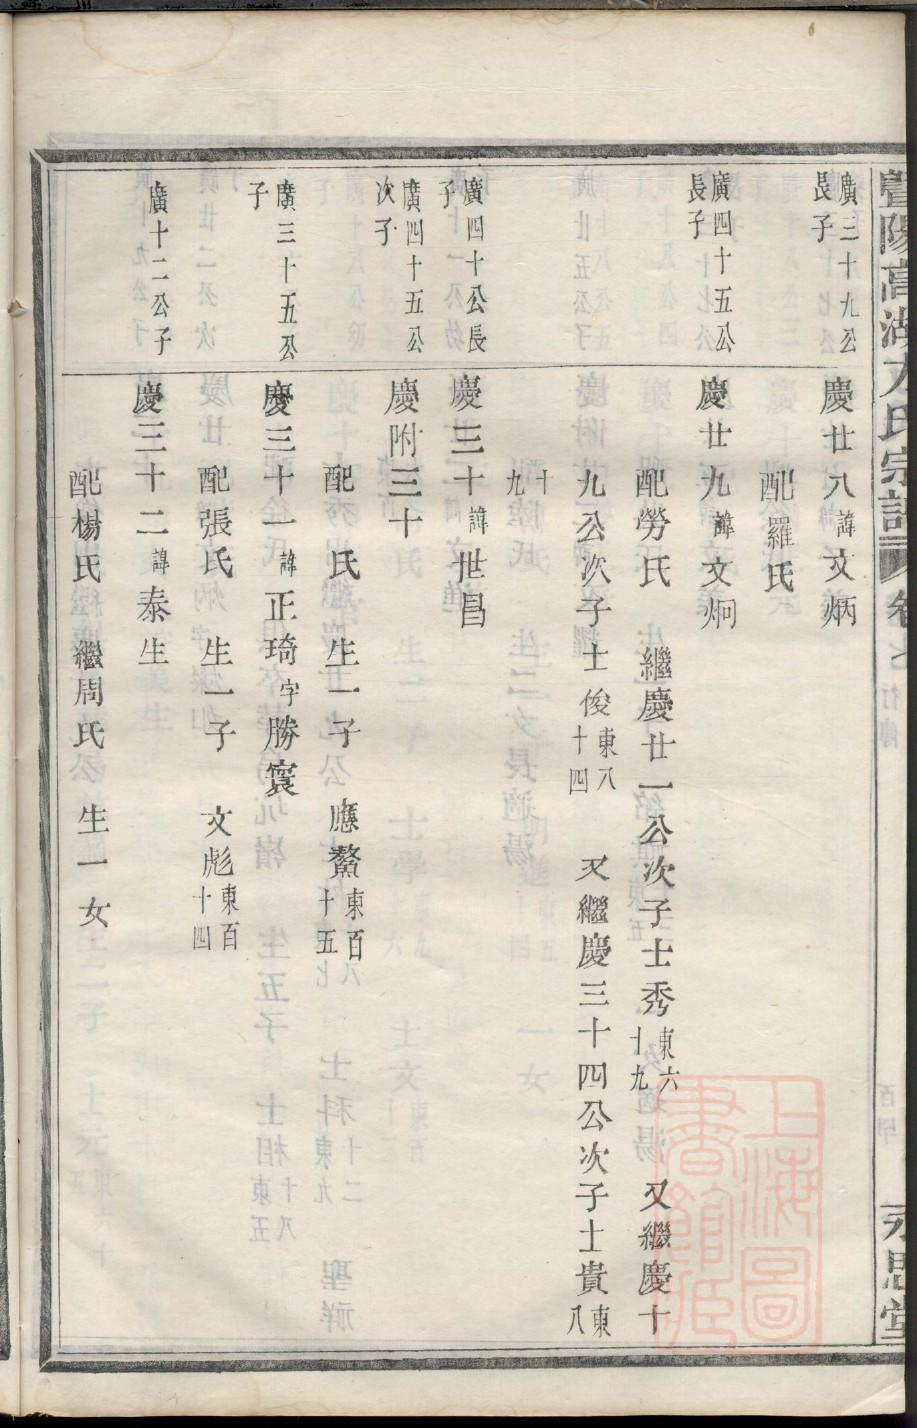 廣三十九公長子
慶廿八諱文炳
配羅氏
廣四十五公長子
慶廿九諱文炯
配勞氏 繼慶廿一公次子士秀東六十九 又繼慶十
九公次子士俊東八十四 又繼慶三十四公次子士貴東八
十九
廣四十公長子
慶三十諱世昌
廣四十五公次子
慶附三十
配 氏 生一子 應鰲東百十五
廣三十五公子
慶三十一諱正琦字勝寰
配張氏 生一子 文彪東百十四
廣十二公子
慶三十二諱泰生
配楊氏 繼周氏 生一女